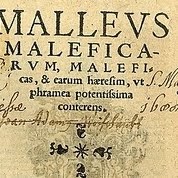 MALLEVS
MALEFICA-
RVM, MALEFI
cas, & earum hæresim, vt
phramea potentissima
conterens.